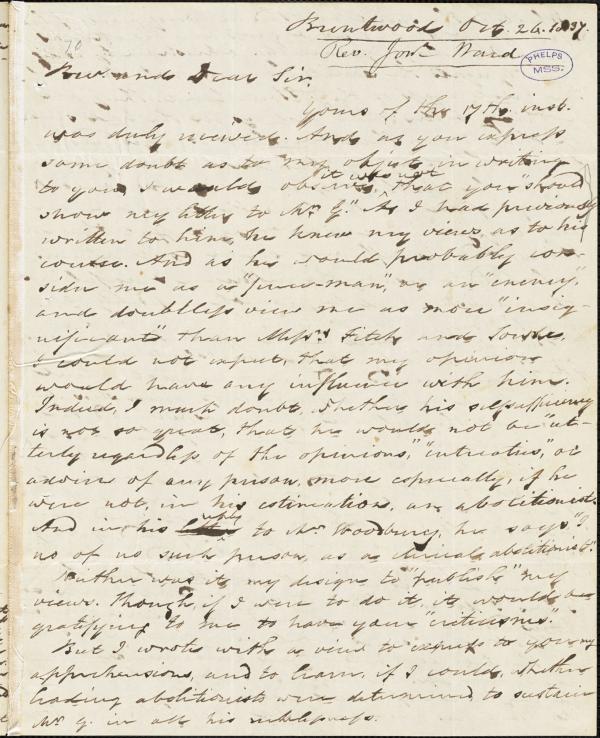 Brentwood Oct. 26. 1837.
Rev. Jonn. Ward
PHELPS
MSS.
Rev. and Dear Sir,
Yours of the 17th. inst.
was duly received. And as you express
some doubt as to my object in writing
to you, I would observe, it was not that you "should
show my letter to Mr. G." As I had previously
written to him, he knew my views, as to his
course. And as he would probably con-
sider me as a "juice-man", or an "enemy",
and doubtless view me as more "insig-
nificant" than Messrs. Fitch and Towne,
I could not expect, that my opinion
would have any influence with him.
Indeed, I much doubt, whether his selfsufficiency
is not so great, that he would not be "ut-
terly regardless of the opinions," "intreaties," or
advice of any person, more especially, if he
were not, in his estimation, an abolitionist.
And in his reply to Mr. Woodbury, he says "I
no of no such person, as a clerical abolitionist".
Neither was it my design to "publish" my
views. Though, if I were to do it, it would be
gratifying to me to have your "criticisms."
But I wrote with a view to express to you my
apprehensions, and to learn, if I could, whether
leading abolitionists were determined to sustain
Mr. G. in all his recklessness.